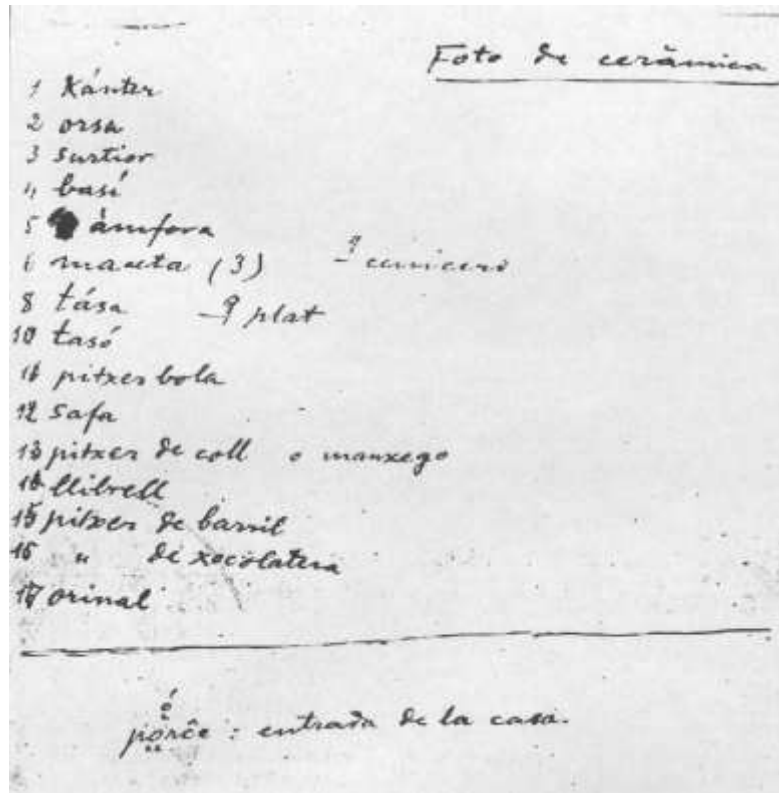 Foto de cerâmica
1 Kánter
2 orsa
3 surtior
4 basí
5 ámfora
6 maceta (3) 7 cenicero
8 tása 9 plat
10 tasó
11 pitxer bola
12 safa
13 pitxer de coll o manxego
14 llibrell
15 pitxer de barril
16 " de xocolatera
17 orinal
pórĉe : entrada de la casa.